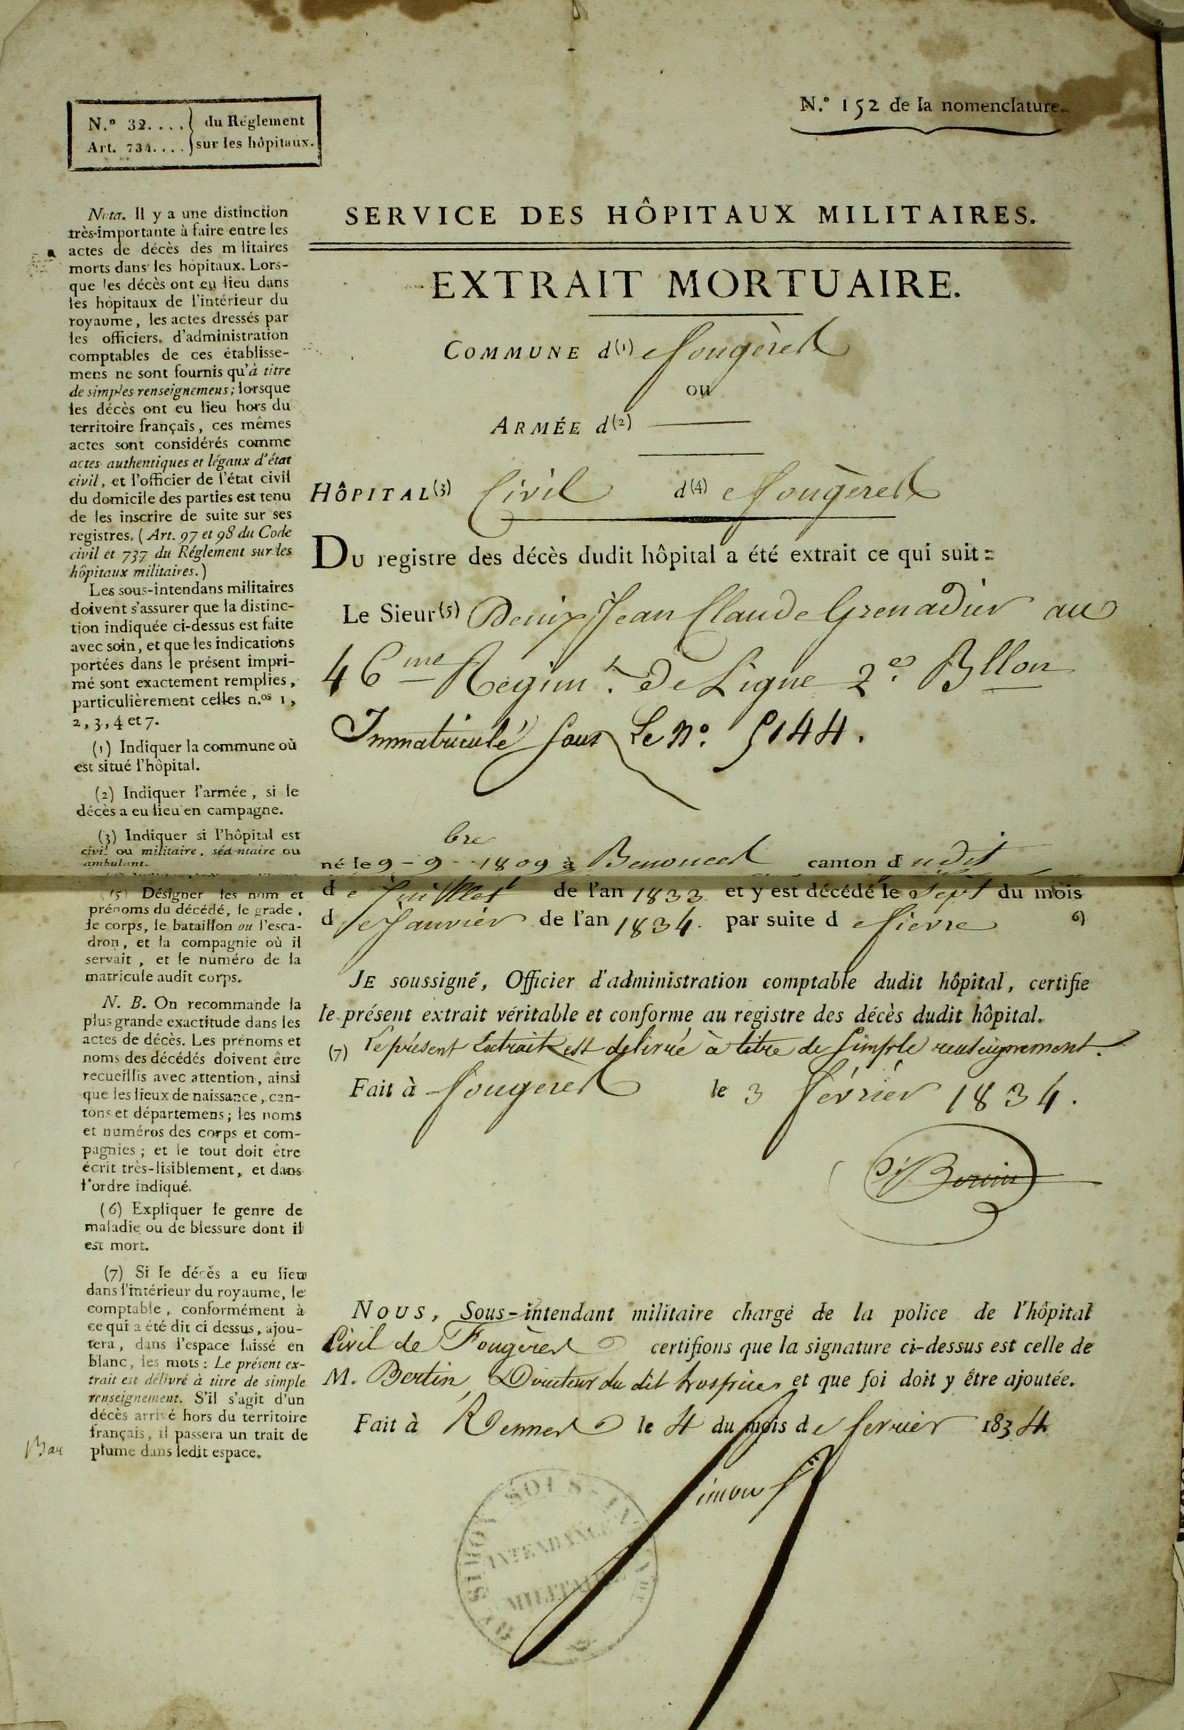 N.º 32.... du Réglement
Art. 734.... sur les hôpitaux.
N.º 152 de la nomenclature.
SERVICE DES HÔPITAUX MILITAIRES.
EXTRAIT MORTUAIRE.
COMMUNE d(1) e fougères
ou
ARMÉE d(2)
HÔPITAL(3) Civil d(4) e fougères
Du registre des décès dudit hôpital a été extrait ce qui suit :
Le Sieur(5) Denix Jean Claude Grenadier au
46me Régim.t de Ligne 2e Bllon
Immatriculé sous le n.º 5144.
né le 9 9bre 1809 à canton dudit
de Juillet de l'an 1833 et y est décédé le sept du mois
de Janvier de l'an 1834. par suite de fièvre 6)
JE soussigné, Officier d'administration comptable dudit hôpital, certifie
le présent extrait véritable et conforme au registre des décès dudit hôpital.
(7) le présent Extrait est délivré à titre de simple renseignement.
Fait à fougères le 3 février 1834.
Bertin
NOUS, Sous-intendant militaire chargé de la police de l'hôpital
Civil de Fougères certifions que la signature ci-dessus est celle de
M. Bertin, Directeur du dit hospice, et que foi doit y être ajoutée.
Fait à Rennes le 4 du mois de fevrier 1834
SOUS-INTENDANCE
MILITAIRE
Nota. Il y a une distinction
très-importante à faire entre les
actes de décès des m litaires
morts dans les hôpitaux. Lors-
que les décès ont eu lieu dans
les hôpitaux de l'intérieur du
royaume, les actes dressés par
les officiers, d'administration
comptables de ces établisse-
mens ne sont fournis qu'à titre
de simples renseignemens; lorsque
les décès ont eu lieu hors du
territoire français, ces mêmes
actes sont considérés comme
actes authentiques et légaux d'état
civil, et l'officier de l'état civil
du domicile des parties est tenu
de les inscrire de suite sur ses
registres. (Art. 97 et 98 du Code
civil et 737 du Réglement sur les
hôpitaux militaires.)
Les sous-intendans militaires
doivent s'assurer que la distinc-
tion indiquée ci-dessus est faite
avec soin, et que les indications
portées dans le présent impri-
mé sont exactement remplies,
particulièrement celles n.os 1,
2, 3, 4 et 7.
(1) Indiquer la commune où
est situé l'hôpital.
(2) Indiquer l'armée, si le
décès a eu lieu en campagne.
(3) Indiquer si l'hôpital est
civil ou militaire, sédentaire ou
ambulant.
(5) Désigner les nom et
prénoms du décédé, le grade,
le corps, le bataillon ou l'esca-
dron, et la compagnie où il
servait, et le numéro de la
matricule audit corps.
N. B. On recommande la
plus grande exactitude dans les
actes de décès. Les prénoms et
noms des décédés doivent être
recueillis avec attention, ainsi
que les lieux de naissance, can-
tons et départemens; les noms
et numéros des corps et com-
pagnies; et le tout doit être
écrit très-lisiblement, et dans
l'ordre indiqué.
(6) Expliquer le genre de
maladie ou de blessure dont il
est mort.
(7) Si le décès a eu lieu
dans l'intérieur du royaume, le
comptable, conformément à
ce qui a été dit ci dessus, ajou-
tera, dans l'espace laissé en
blanc, les mots : Le présent ex-
trait est délivré à titre de simple
renseignement. S'il s'agit d'un
décès arrivé hors du territoire
français, il passera un trait de
plume dans ledit espace.